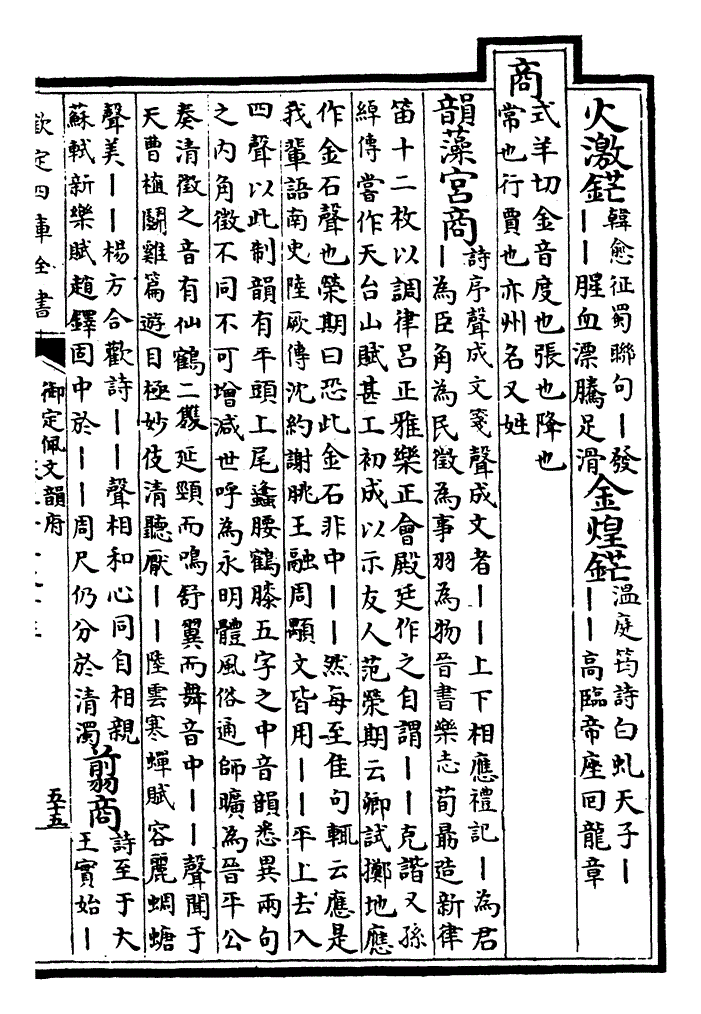 火激鋩韓愈征蜀聯句丨發丨丨腥血漂騰足滑金煌鋩溫庭筠詩白虬天子丨丨丨高臨帝座回龍章
商式羊切金音度也張也降也常也行賈也亦州名又姓
韻藻宮商詩序聲成文箋聲成文者丨丨上下相應禮記丨為君丨為臣角為民徵為事羽為物晉書樂志荀勗造新律
笛十二枚以調律呂正雅樂正會殿廷作之自謂丨丨克諧又孫綽傳嘗作天台山賦甚工初成以示友人范榮期云卿試擲地應
作金石聲也榮期曰恐此金石非中丨丨然每至佳句輒云應是我輩語南史陸厥傳沈約謝朓王融周顒文皆用丨丨平上去入
四聲以此制韻有平頭上尾蠭腰鶴膝五字之中音韻悉異兩句之內角徵不同不可增減世呼為永明體風俗通師曠為晉平公
奏清徵之音有仙鶴二雙延頸而鳴舒翼而舞音中丨丨聲聞于天曹植鬬雞篇遊目極妙伎清聽厭丨丨陸雲寒蟬賦容麗蜩螗
聲美丨丨楊方合歡詩丨丨聲相和心同自相親蘇軾新樂賦趙鐸固中於丨丨周尺仍分於清濁翦商詩至于大王實始丨
欽定四庫全書
御定佩文韻府
五十五